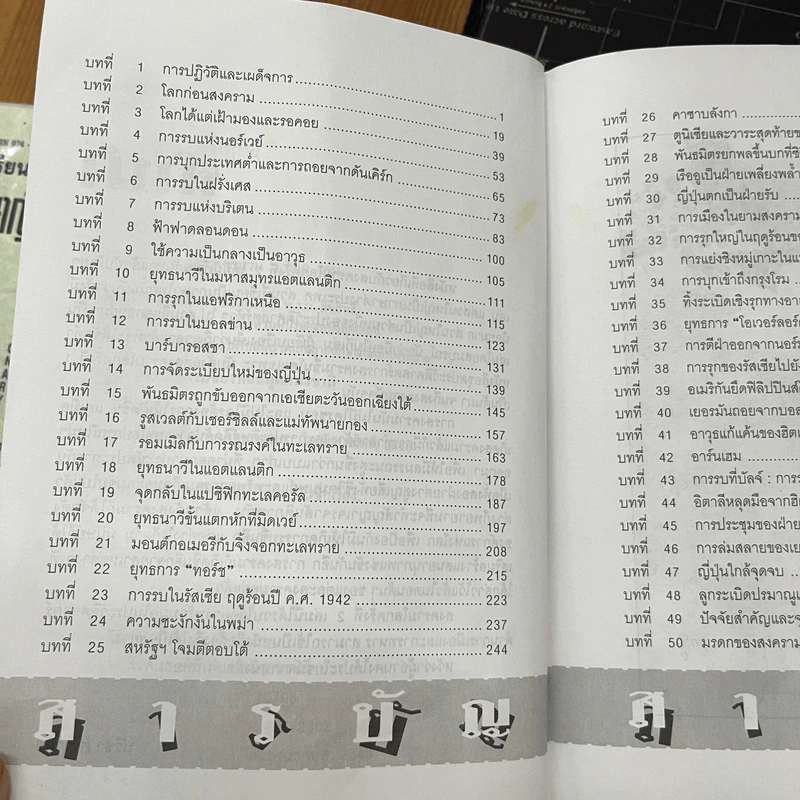 บทที่ 1 การปฏิวัติและเผด็จการ 1
บทที่ 2 โลกก่อนสงคราม 19
บทที่ 3 โลกได้แต่เฝ้ามองและรอคอย 39
บทที่ 4 การรบแห่งนอร์เวย์ 53
บทที่ 5 การบุกประเทศต่ำและการถอยจากดันเคิร์ก 65
บทที่ 6 การรบในฝรั่งเศส 73
บทที่ 7 การรบแห่งบริเตน 83
บทที่ 8 ฟ้าฟาดลอนดอน 100
บทที่ 9 ใช้ความเป็นกลางเป็นอาวุธ 105
บทที่ 10 ยุทธนาวีในมหาสมุทรแอตแลนติก 111
บทที่ 11 การรุกในแอฟริกาเหนือ 115
บทที่ 12 การรบในบอลข่าน 123
บทที่ 13 บาร์บารอสซา 131
บทที่ 14 การจัดระเบียบใหม่ของญี่ปุ่น 139
บทที่ 15 พันธมิตรถูกขับออกจากเอเชียตะวันออกเฉียงใต้ 145
บทที่ 16 รูสเวลต์กับเชอร์ชิลล์และแม่ทัพนายกอง 157
บทที่ 17 รอมเมิลกับการรณรงค์ในทะเลทราย 163
บทที่ 18 ยุทธนาวีในแอตแลนติก 178
บทที่ 19 จุดกลับในแปซิฟิกทะเลคอรัล 187
บทที่ 20 ยุทธนาวีขั้นแตกหักที่มิดเวย์ 197
บทที่ 21 มอนต์กอเมอรีกับจิ้งจอกทะเลทราย 208
บทที่ 22 ยุทธการ “ทอร์ช” 215
บทที่ 23 การรบในรัสเซีย ฤดูร้อนปี ค.ศ. 1942 223
บทที่ 24 ความชะงักงันในพม่า 237
บทที่ 25 สหรัฐฯ โจมตีตอบโต้ 244
สารบัญ
บทที่ 26 คาซาบลังกา
บทที่ 27 ตูนิเซียและวาระสุดท้ายข
บทที่ 28 พันธมิตรยกพลขึ้นบกที่ซิ
บทที่ 29 เรืออูเป็นฝ่ายเพลี่ยงพล้ำ
บทที่ 30 ญี่ปุ่นตกเป็นฝ่ายรับ
บทที่ 31 การเมืองในยามสงคราม
บทที่ 32 การรุกใหญ่ในฤดูร้อนขอ
บทที่ 33 การแย่งชิงหมู่เกาะในแ
บทที่ 34 การบุกเข้าถึงกรุงโรม
บทที่ 35 ทิ้งระเบิดเชิงรุกทางอา
บทที่ 36 ยุทธการ “โอเวอร์ลอร์
บทที่ 37 การตีฝ่าออกจากนอร์ม
บทที่ 38 การรุกของรัสเซียไปยัง
บทที่ 39 อเมริกันยึดฟิลิปปินส์
บทที่ 40 เยอรมันถอยจากบอล
บทที่ 41 อาวุธแก้แค้นของฮิตเ
บทที่ 42 อาร์นเฮม
บทที่ 43 การรบที่บัลจ์ : การร
บทที่ 44 อิตาลีหลุดมือจากฮิต
บทที่ 45 การประชุมของฝ่าย
บทที่ 46 การล่มสลายของเย
บทที่ 47 ญี่ปุ่นใกล้จุดจบ
บทที่ 48 ลูกระเบิดปรมาณูแ
บทที่ 49 ปัจจัยสำคัญและจุ
บทที่ 50 มรดกของสงคราม
สา